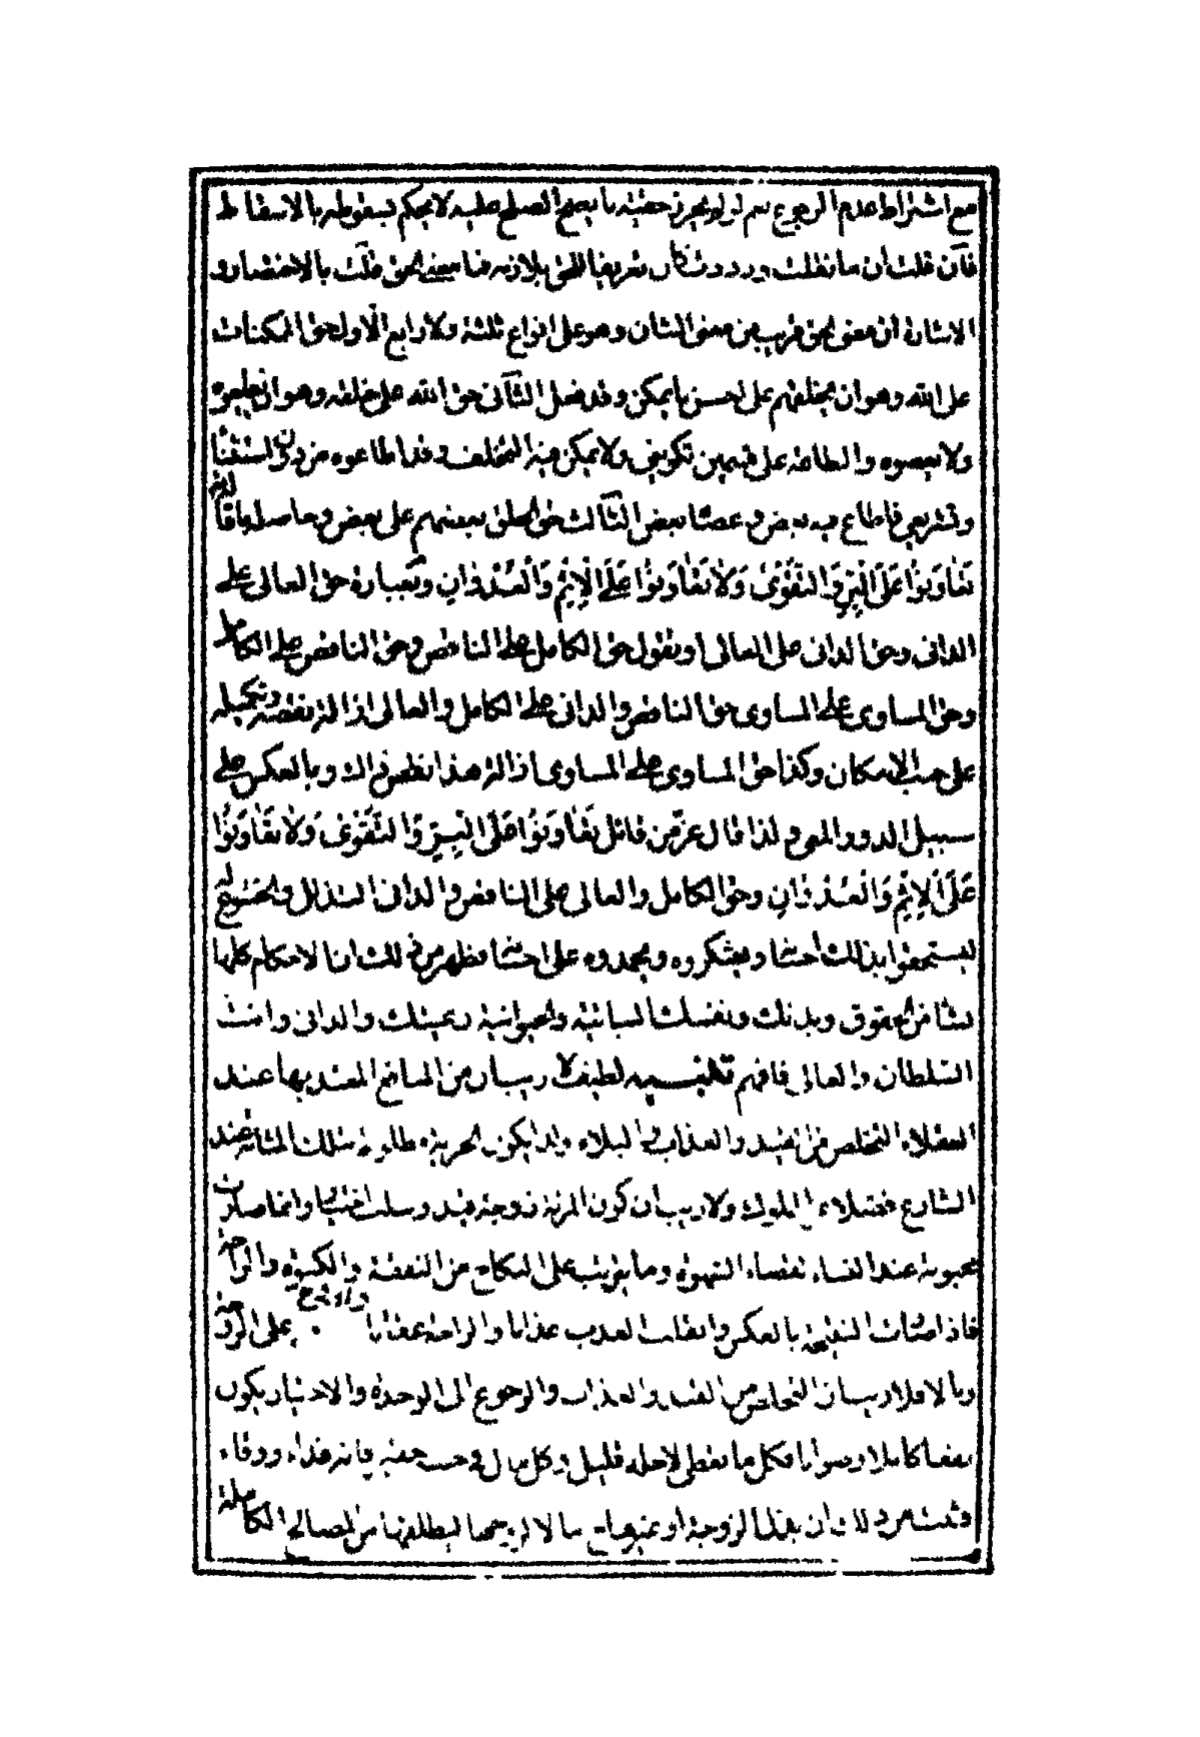 مع اشتراط عدم الرجوع نعم لو لم يحرز حقيته ما يصح الصلح عليه لا يحكم بسقوطه بالاسقاط
فان قلت ان ما نقلت تعريفا للحق بلازمه فما معنى الحق قلت بالاختصار و
الاشارة ان معنى الحق قريب من معنى الشان وهو على انواع ثلثة ولا رابع الاول حق الممكنات
على الله وهو ان يخلقهم على احسن ما يمكن وقد فعل الثانى حق الله على خلقه وهو ان يطيعوه
ولا يعصوه والطاعة على قسمين تكوينى ولا يمكن فيه التخلف وقد اطاعوه من دون استثناء
وتشريعى فاطاع فيه بعض وعصا بعض الثالث حق الخلق بعضهم على بعض وحاصله
تَعٰاوَنُوا عَلَى الْبِرِّ وَالتَّقْوىٰ وَلاٰ تَعٰاوَنُوا عَلَى الْاِثْمِ وَالْعُدْوٰانِ وبعبارة حق العالى على
الدانى وحق الدانى على العالى او نقول حق الكامل على الناقص وحق الناقص على الكامل
وحق المساوى على المساوى حق الناقص والدانى على الكامل والعالى ازالة نقصه وتكميله
على حسب الامكان وكذا حق المساوى على المساوى ازالة هذا نقص ذاك وبالعكس على
سبيل الدور المعى ولذا قال عز من قائل تَعٰاوَنُوا عَلَى الْبِرِّ وَالتَّقْوىٰ وَلاٰ تَعٰاوَنُوا
عَلَى الْاِثْمِ وَالْعُدْوٰانِ وحق الكامل والعالى على الناقص والدانى التذلل والخضوع له
ليستحقوا بذلك احسانا ويشكروه ويحمدوه على احسانه فظهر من ذلك ان الاحكام كلها
تنشا من الحقوق وبدنك ونفسك النباتية والحيوانية رعيتك والدانى وانت
السلطان والعالى فافهم تنبيه لطيف لا ريب ان من المنافع المعتد بها عند
العقلاء التخلص من القيد والعذاب والبلاء ولذا يكون الحرية مطلوبة عند
الشارع فعقلاء الملوك ولا ريب ان كون المرئة زوجة قيد وسلب اختيار وانما صارت
محبوبة عند النساء لقضاء الشهوة وما يترتب على النكاح من النفقة والكسوة والراحة
فاذا صارت النتيجة بالعكس وانقلب العذب عذابا والراحة عقابا
وبالا فلا ريب ان التخلص من القيد والعذاب والرجوع الى الوحدة والاختيار يكون
نفعا كاملا وصوابا فكل ما تعطى لاجله قليل وكل مال فى جنب حقير فانه فداء ووقاء
فثبت من ذلك ان بذل الزوجة او غيرها مالا لزوجها ليطلقها من المصالح الكاملة